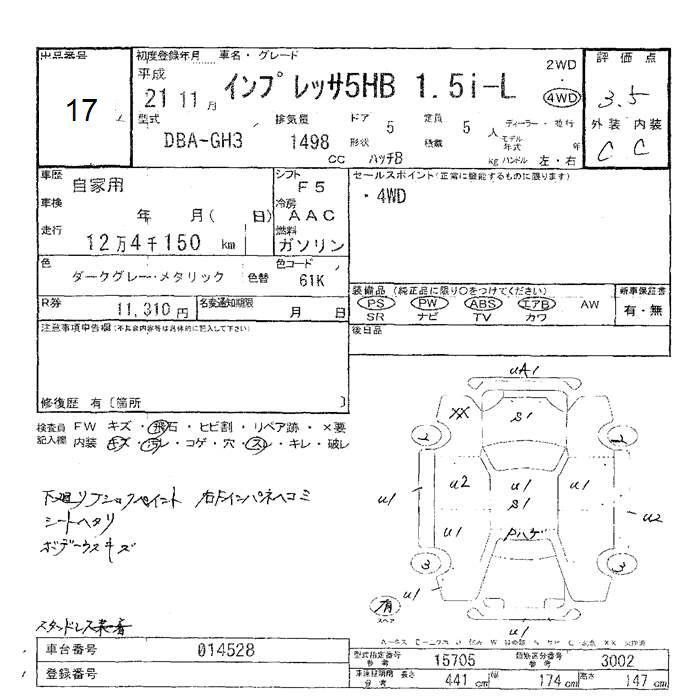 出品番号
17
初度登録年月 車名・グレード
平成
21 11 月 インプレッサ5HB 1.5i-L
2WD
・
4WD
評価点
3.5
外装 内装
C C
型式 排気量 ドア 定員
DBA-GH3 1498 cc 5 5 人
形状 ハッチB 積載 kg ハンドル 左・右
ディーラー・並行
モデル年式 年
車歴 自家用
シフト F5
車検 年 月( 日)
冷房 AAC
走行 12万4千150 km
燃料 ガソリン
色 ダークグレー・メタリック 色替
色コード 61K
R券 11,310 円 名変通知期限 月 日
セールスポイント(正常に機能するものに限ります)
・4WD
装備品 (純正品に限り○をつけてください)
PS PW ABS エアB AW
SR ナビ TV カワ
新車保証書
有・無
後日品
注意事項申告欄(不具合内容等は具体的に記入して下さい)
修復歴 有〔箇所 〕
検査員 FW キズ・飛石・ヒビ割・リペア跡・×要
記入欄 内装 キズ・汚レ・コゲ・穴・スレ・キレ・破レ
シートヘタリ
ボデーウスキズ
uA1
XX
S1
2
2
u1
u2
u1
S1
u1
u2
u1
Pハゲ
3
3
u1
u1
u1
有
スペア
車台番号 014528
登録番号
型式指定番号 参考 15705 類別区分番号 参考 3002
長さ 441 cm 幅 174 cm 高さ 147 cm